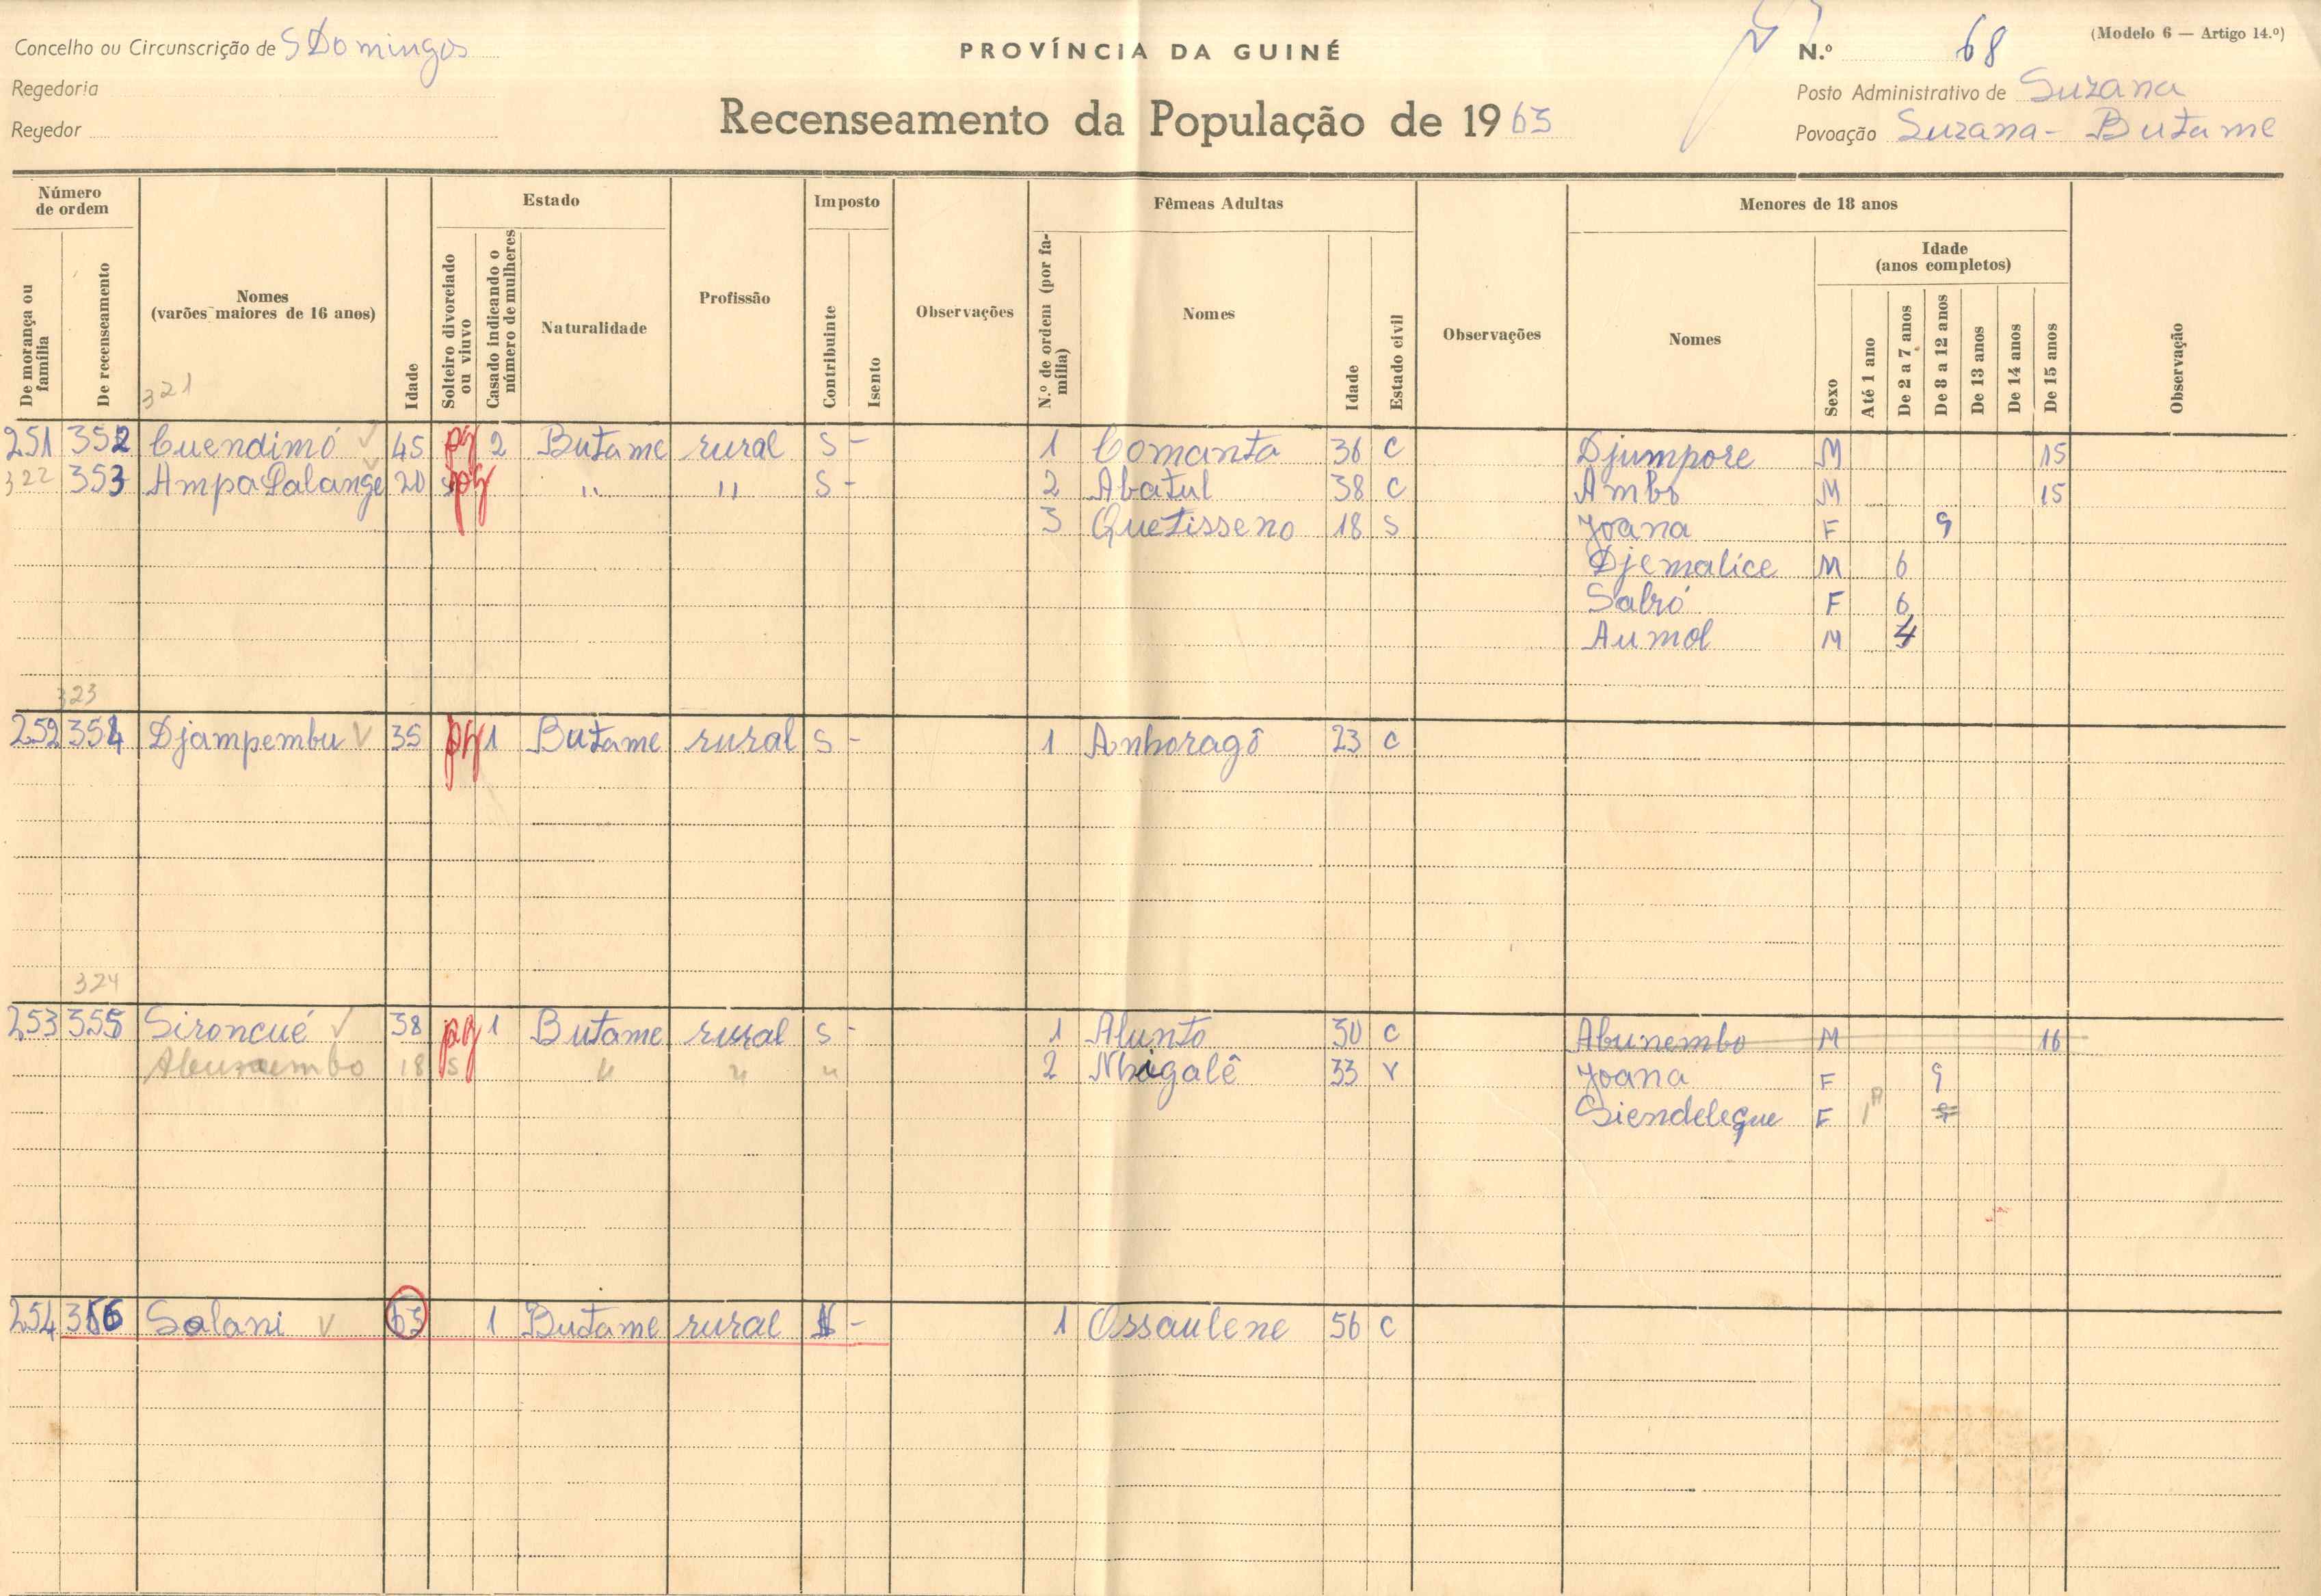 Concelho ou Circunscrição de S Domingos
PROVÍNCIA DA GUINÉ
N.º 68
(Modelo 6 — Artigo 14.º)
Regedoria
Posto Administrativo de Suzana
Regedor
Recenseamento da População de 1963
Povoação Suzana - Butame
Número de ordem
Estado
Imposto
Fêmeas Adultas
Menores de 18 anos
De morança ou família
De recenseamento
Nomes (varões maiores de 16 anos)
Idade
Solteiro divorciado ou viuvo
Casado indicando o número de mulheres
Naturalidade
Profissão
Contribuinte
Isento
Observações
N.º de ordem (por família)
Nomes
Idade
Estado civil
Observações
Nomes
Sexo
Idade (anos completos)
Até 1 ano
De 2 a 7 anos
De 8 a 12 anos
De 13 anos
De 14 anos
De 15 anos
Observação
321
251 352 Cuendimó 45 pg 2 Butame rural S - 1 Comanta 36 C Djumpore M 15
322 353 Ampa Palange 20 S pg " " S - 2 Abatul 38 C Ambo M 15
3 Quetisseno 18 S Joana F 9
Djemalice M 6
Salró F 6
Aumol M 4
323
252 354 Djampembu 35 pg 1 Butame rural S - 1 Anhoragô 23 C
324
253 355 Sironcué 38 pg 1 Butame rural S - 1 Alunto 30 C Abunembo M 16
Abunembo 18 S " " " 2 Nhigalê 33 V Joana F 9
Siendeleque F
254 356 Salani 63 1 Butame rural - 1 Assaulene 56 C